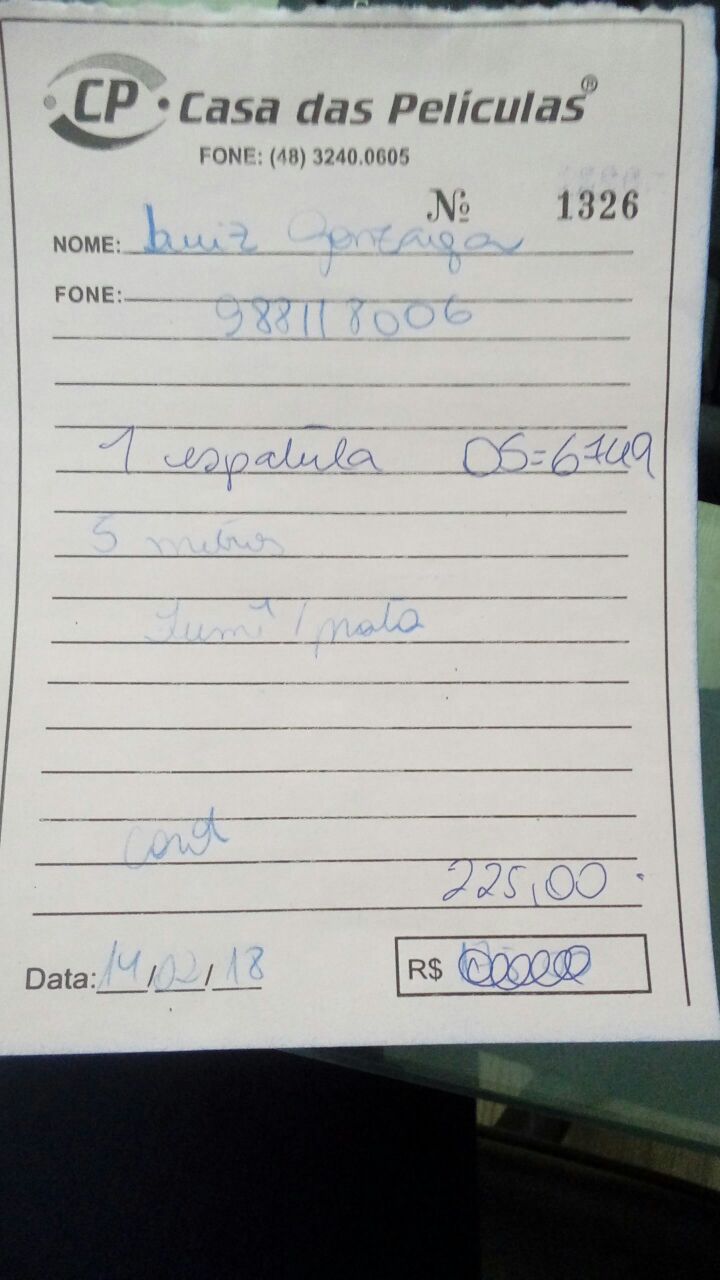 CP • Casa das Películas®
FONE: (48) 3240.0605
Nº 1326
NOME: Luiz Gonzaga
FONE:
988118006
1 espatula OS=6749
5 metros
Fumê / prata
225,00
Data: 14/02/18 R$